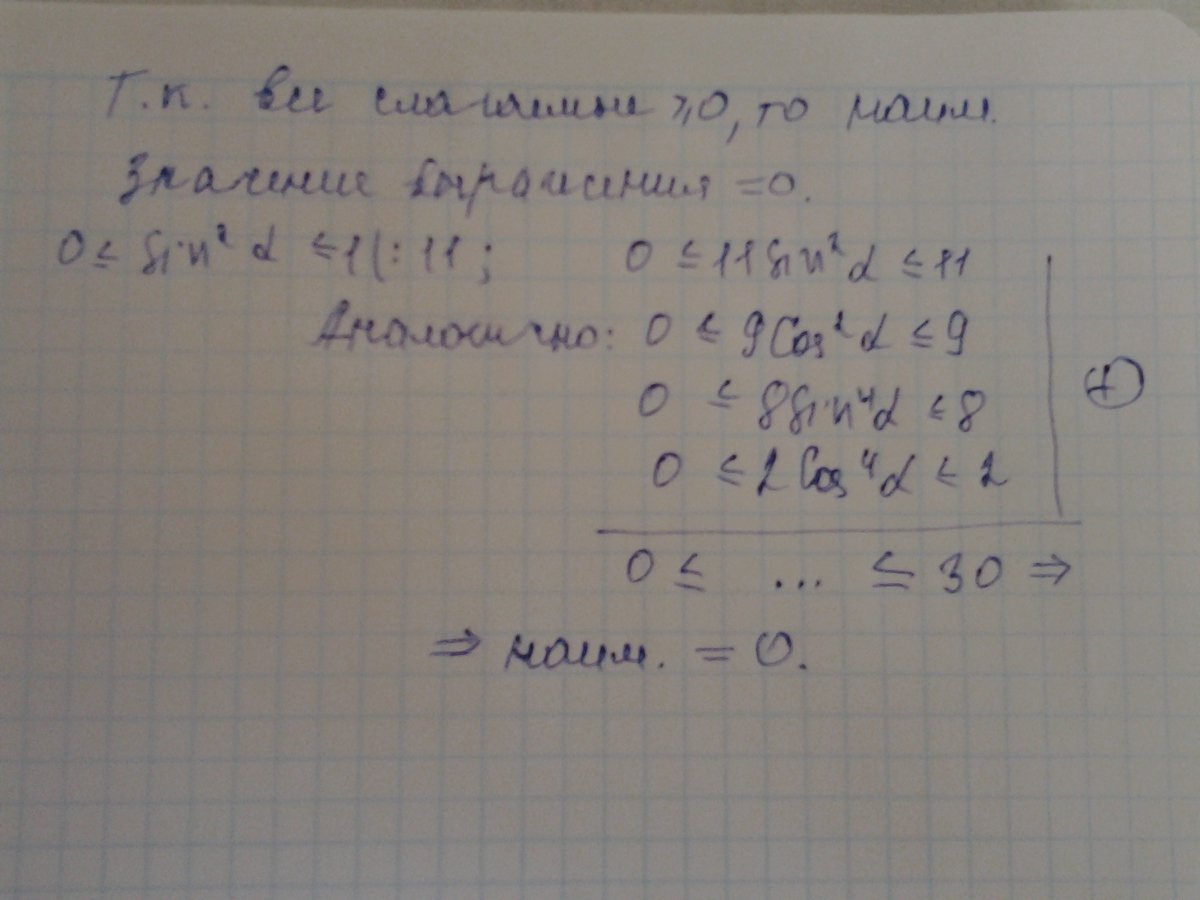 Т.к. все слагаемые ≥0, то наим.
значение выражения =0.
0 ≤ Sin² α ≤ 1 |: 11 ; 0 ≤ 11 Sin² α ≤ 11
Аналогично: 0 ≤ 9 Cos² α ≤ 9
0 ≤ 8 Sin⁴ α ≤ 8
0 ≤ 2 Cos⁴ α ≤ 2
(+)
0 ≤ ... ≤ 30 ⇒
⇒ наим. = 0.